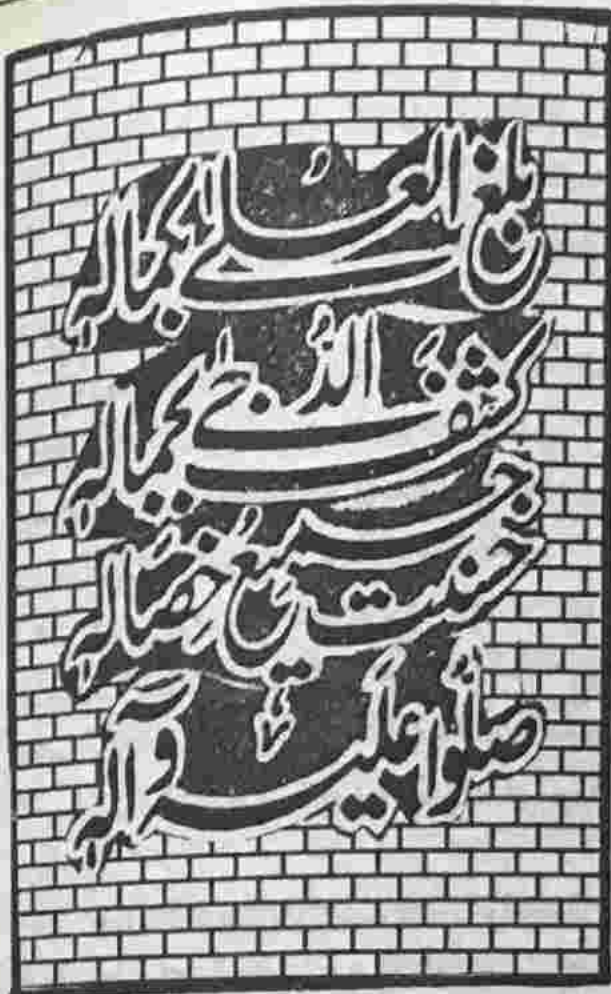 بلغ العلے بکمالہٖ
کشف الدُّجیٰ بجمالہٖ
حسنت جمیع خصالہٖ
صلُّوا علیہ وآلہٖ